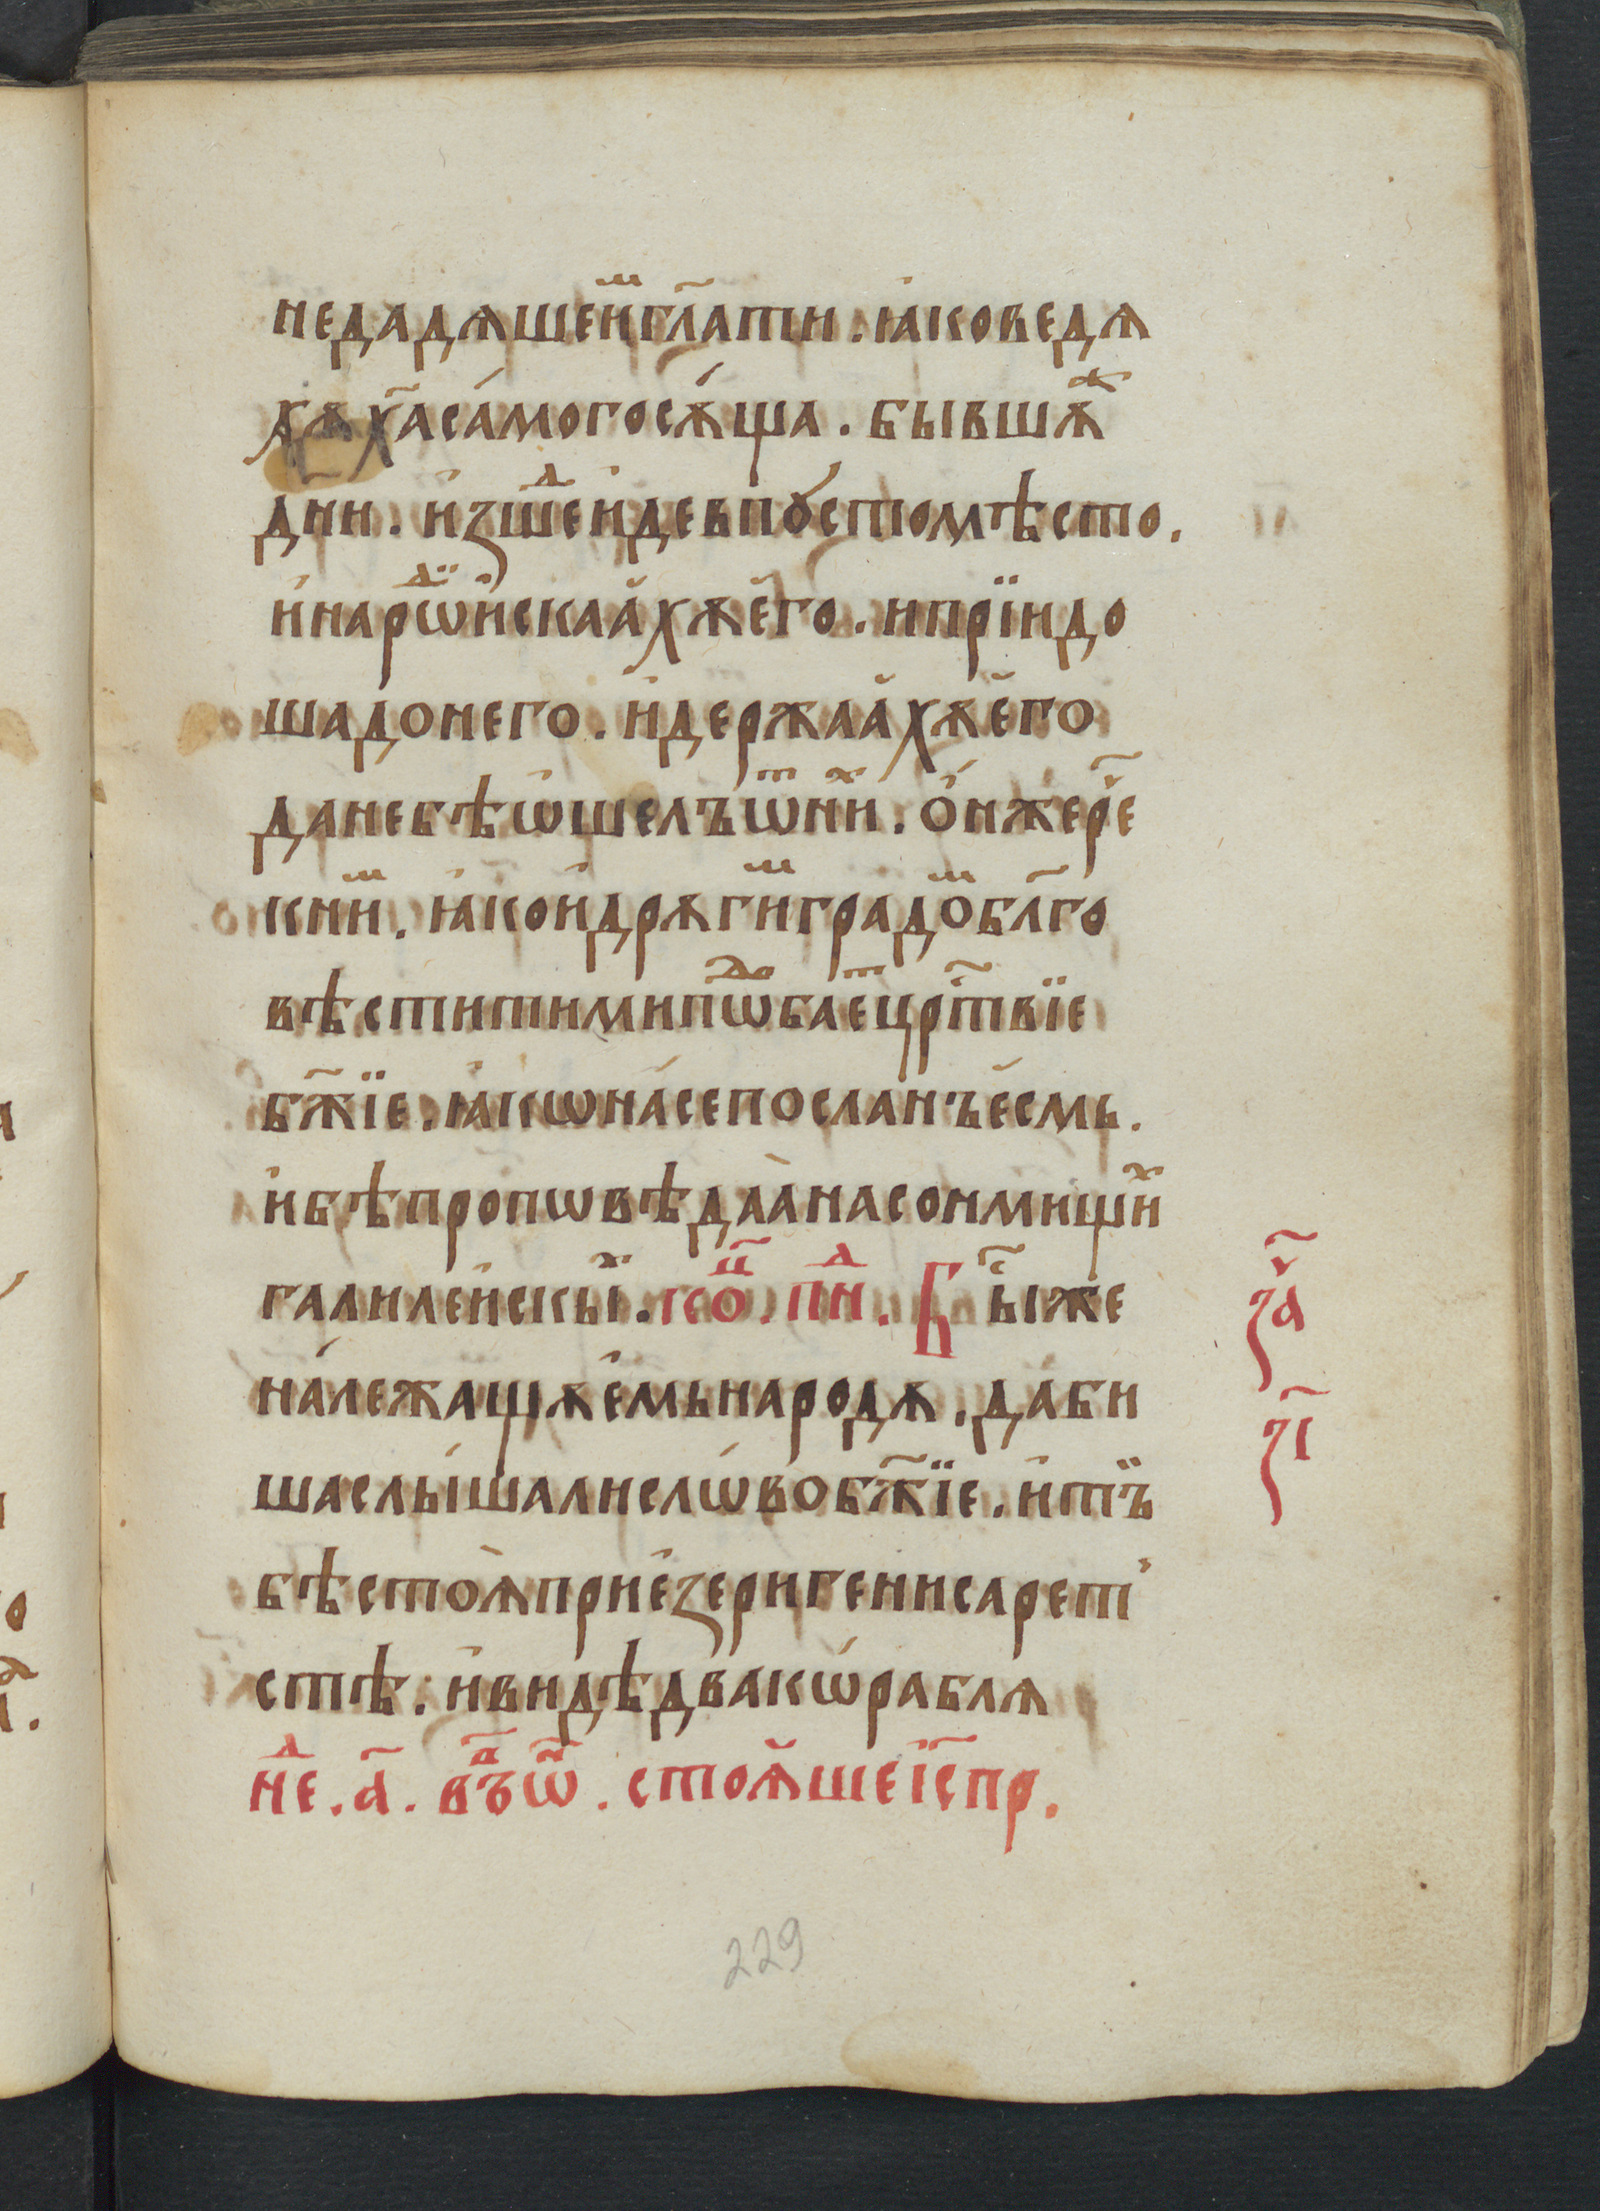 недадѧшеи҆ⷨгл҃ати . ꙗ҆коведѧ
хѫх҃аса́могосѫ́ща . бывшѫⷤ
дни . и҆зше́ⷣи҆девпꙋ́стомѣсто .
и҆нарѡⷣи҆скаа҆хѫе҆го . ипрїидо
шадонего . и҆держаа҆хѫе҆го
данебѣѡ҆шелъѿниⷯ . ѻ҆́нжере҃
книⷨ . ꙗ҆кои҆дрѫгиⷨградоⷨбл҃го
вѣстититмипѡⷣбаеⷮцр҃ⷭтвїе
бж҃їе . ꙗ҆кѡна́сепосланъе҆смь .
и҆бѣпропѡвѣдаа҆насонмищиⷯ
галилеи҆скыⷯ . ксѻⷰ҇ . пнⷣ . Бы҃ⷭже
на́лежащѫе҆мьнародѫ . даби
шаслы́шалислѡ́вобж҃їе . и҆тъ
бѣстоѧ̀прие҆зеригенисарет
стѣ . и҆видѣдвакѡ́раблѧ
неⷣ . а҃ . въѡ҃ⷩ . стоѧ̀шеі҃спр .
з҃а
з҃і
229